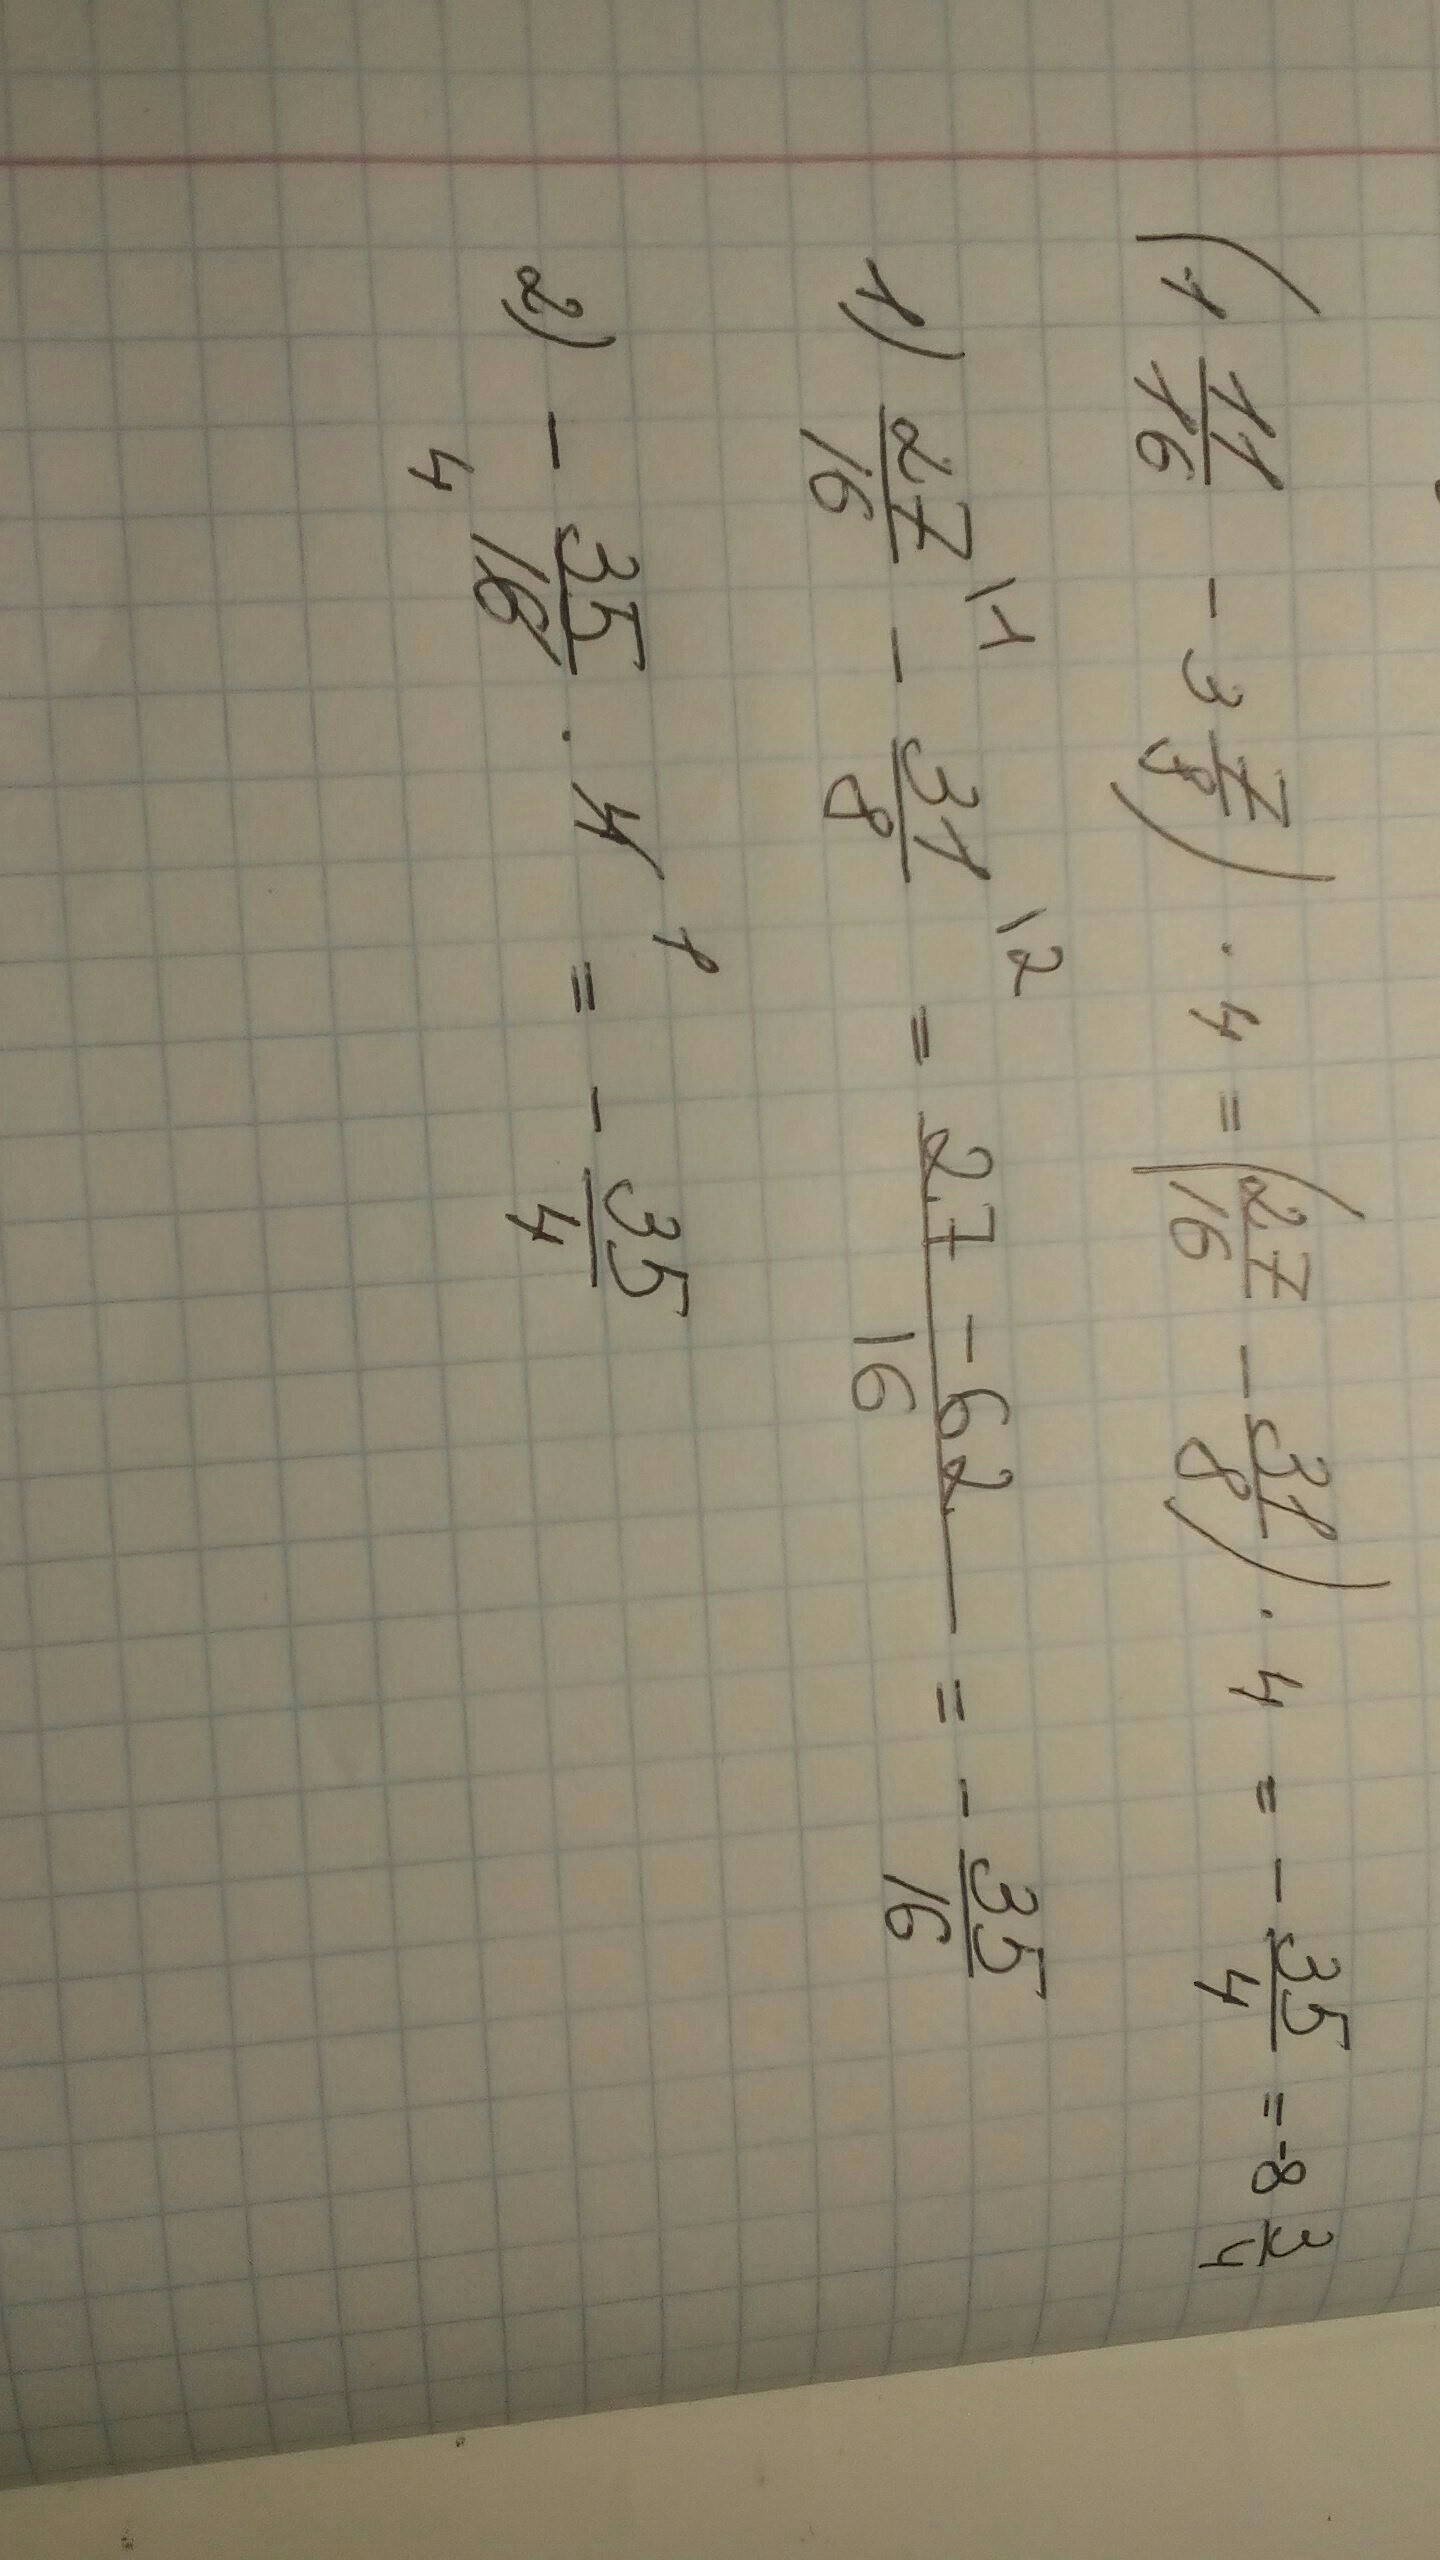 (1 11/16 - 3 7/8) · 4 = (27/16 - 31/8) · 4 = - 35/4 = -8 3/4
1) 27/16 \1 - 31/8 \2 = 27 - 62/16 = - 35/16
2) - 35/16 4 · 4 1 = - 35/4